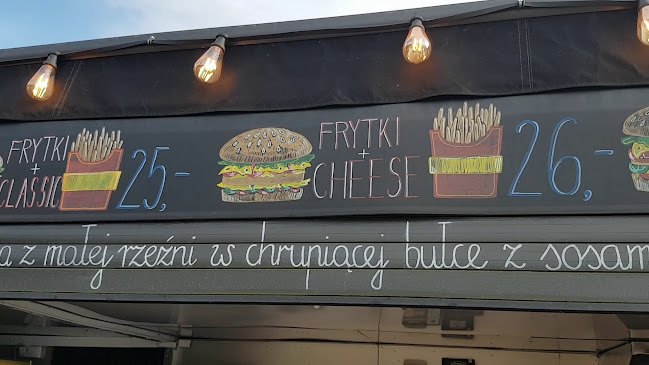 FRYTKI
+
CLASSIC
25,-
FRYTKI
+
CHEESE
26,-
a z małej rzeźni w chrupiącej bułce z sosam